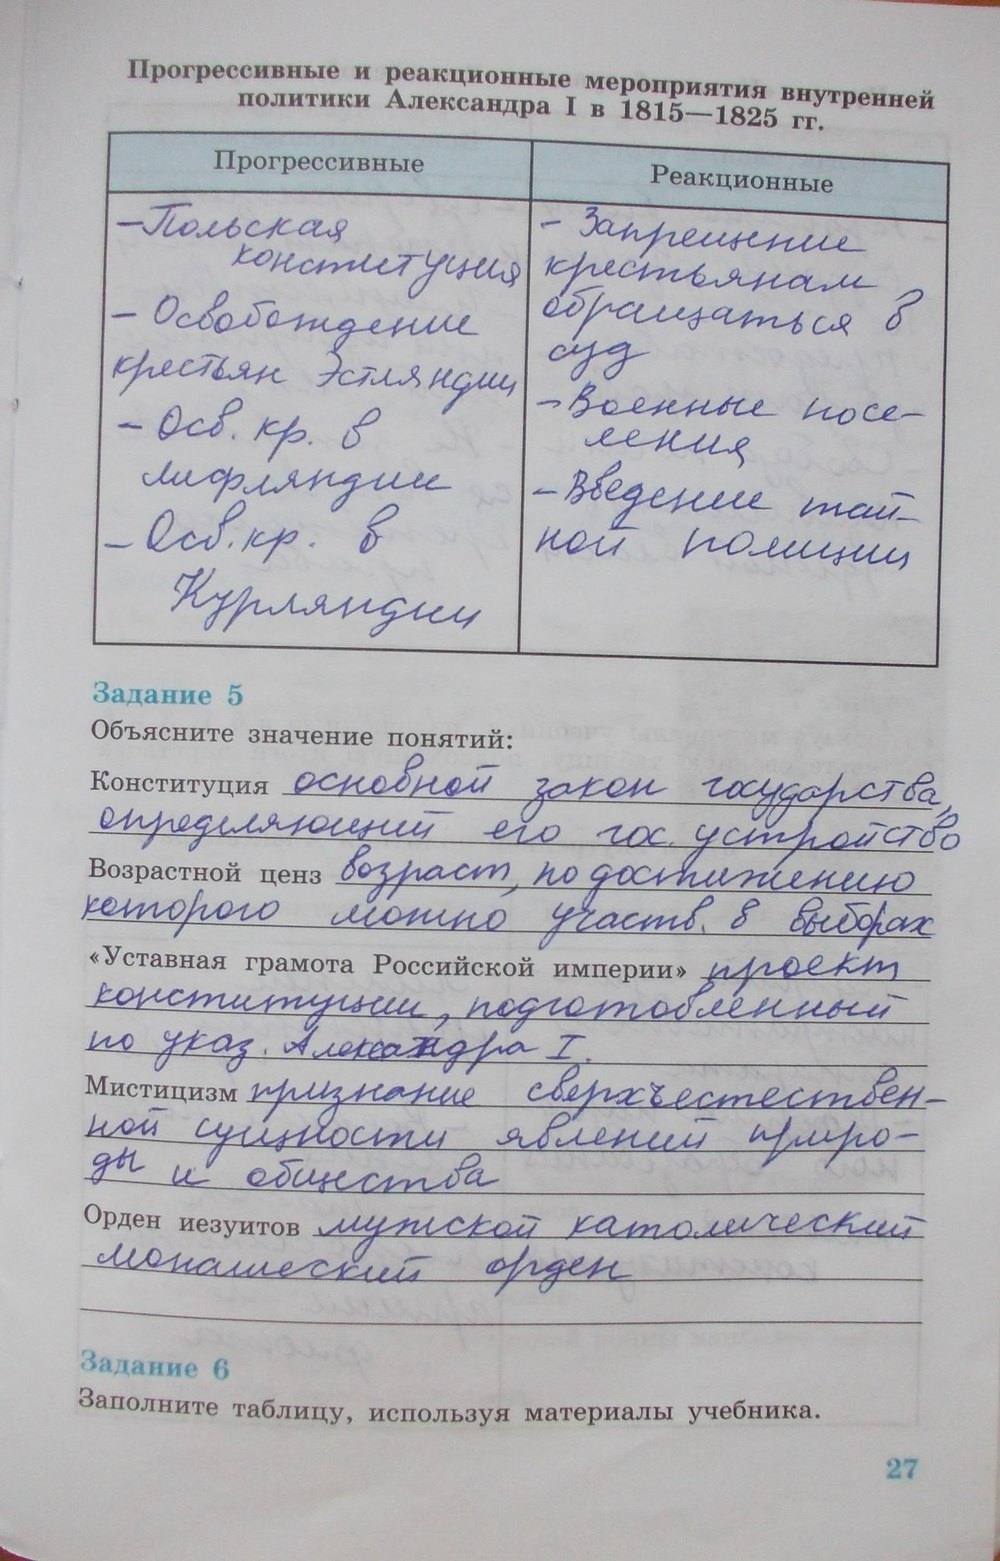 Прогрессивные и реакционные мероприятия внутренней
политики Александра I в 1815—1825 гг.
Прогрессивные
Реакционные
- Польская
конституция
- Освобождение
крестьян Эстляндии
- Осв. кр. в
лифляндии
- Осв. кр. в
Курляндии
- Запрещение
крестьянам
обращаться в
суд
- Военные посе-
ления
- Введение тай-
ной полиции
Задание 5
Объясните значение понятий:
Конституция основной закон государства,
определяющий его гос. устройство
Возрастной ценз возраст, по достижению
которого можно участв. в выборах
«Уставная грамота Российской империи» проект
конституции, подготовленный
по указ. Александра I.
Мистицизм признание сверхъестествен-
ной сущности явлений приро-
ды и общества
Орден иезуитов мужской католический
монашеский орден
Задание 6
Заполните таблицу, используя материалы учебника.
27